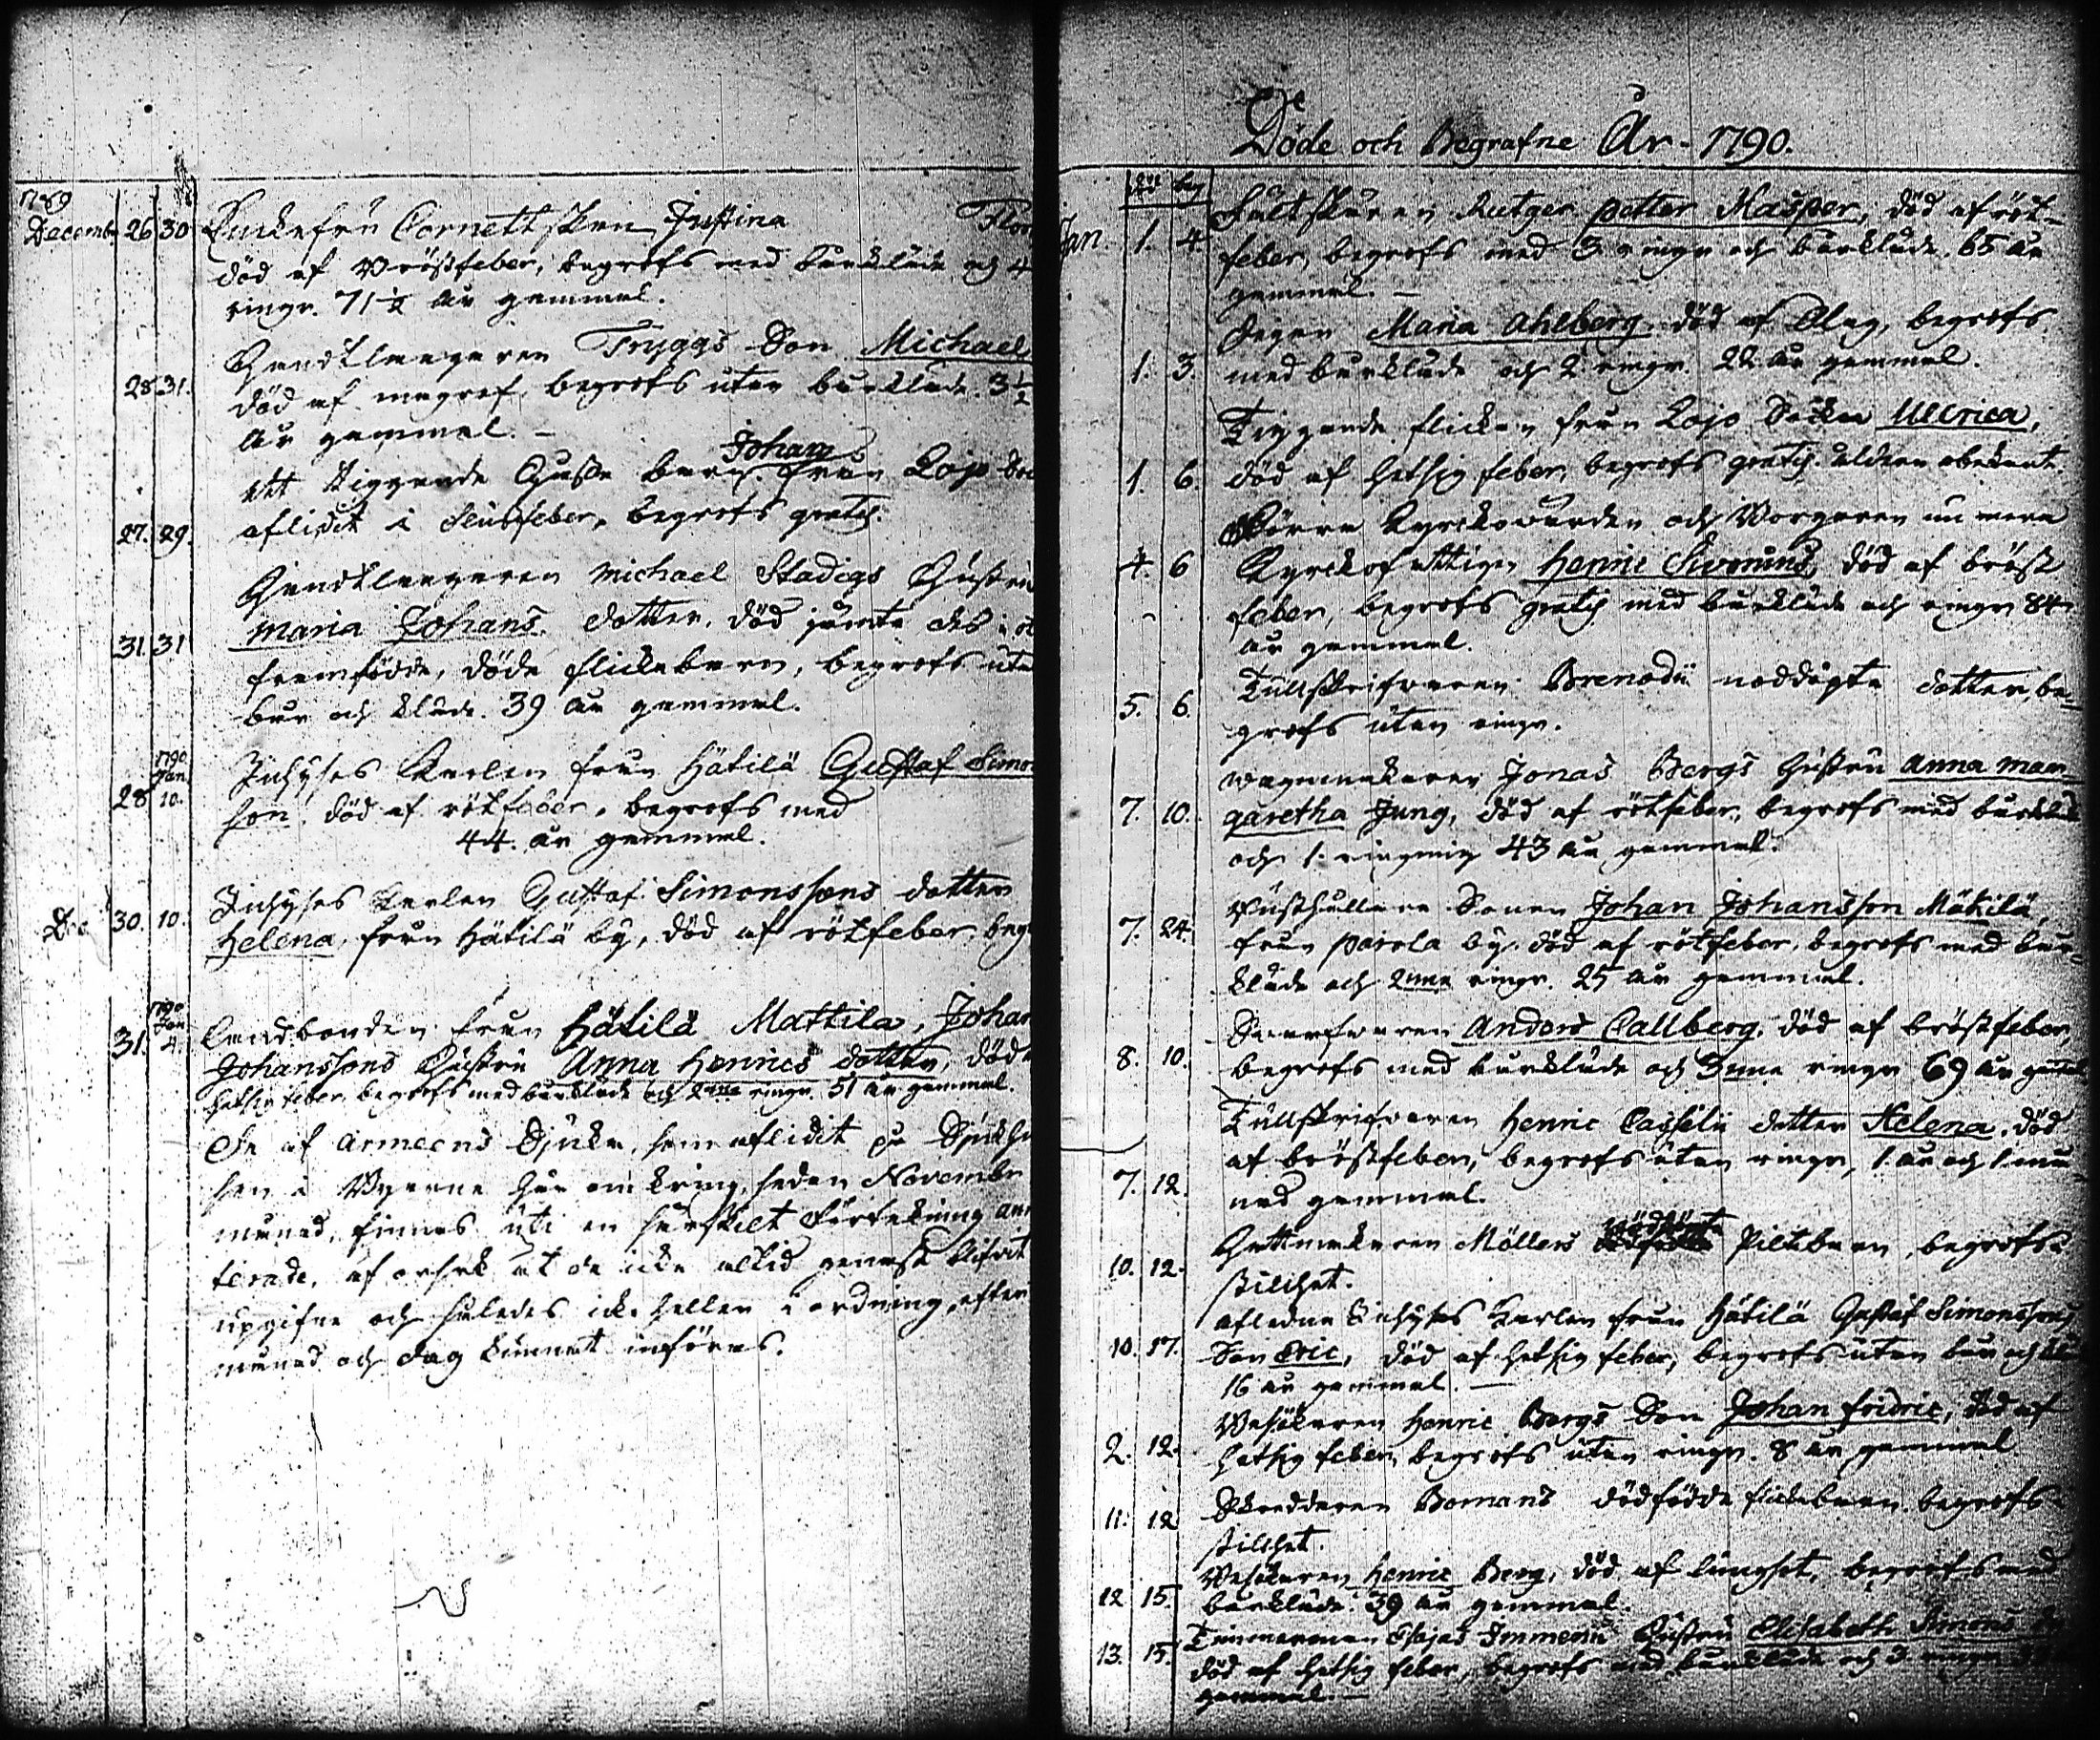 1789
Decemb. 26 30 Enkefru Cornettskan Justina Flor
död af Bröstfeber, begrofs med bårkläde och 4
ringn. 71½ år gammal.
28 31. Handtlangaren Tryggs Son Michael
död af magref, begrofs utan bårkläde. 3½
år gammal. –
Johans
ett tiggande barn från Lojo
27. 29. aflidit i feber, begrofs gratis.
Handtlangaren Michael Stadigs Hustru
31. 31 Maria Johans dotter, död jämte des
framfödde, döde flickebarn, begrofs utan
bår och kläde. 39 år gammal.
1790
Jan.
28 10. Inhyses Karlen från Hätilä Gustaf Simons
son, död af rötfeber, begrofs med
44. år gammal.
Dec 30. 10. Inhyses karlen Gustaf Simonssons dotter
Helena, från Hätilä by, död af rötfeber, begr
1790
Jan
31. 4. Landbonden från Hätilä Mattila, Johan
Johanssons Hustru Anna Henrics dotter, död
hetsig feber, begrofs med bårkläde och 2nne ringn. 51 år gammal.
De af Armeens Sjuka, som aflidit på Sjukhu
sen i Byarne här omkring, sedan November
månad, finnas uti en särskilt förtekning
terade, af orsak at de icke altid genast blifvit
upgifne och således icke heller i ordning, efter
månad och dag kunnat införas.
Döde och Begrafne År – 1790.
död beg
Jan. 1. 4. Fältskären Rutger Petter Masper, död af röt-
feber, begrofs med 3 ringn och bårkläde. 65 år
gammal. –
Pigan Maria Ahlberg, död af Slag, begrofs
1. 3. med bårkläde och 2 ringn. 22 år gammal.
Tiggande flickan från Lojo Sokn Ullrica,
1. 6. död af hetsig feber, begrofs gratis. ålderen obekant.
Förre Kyrckovärden och Borgaren nu mera
4. 6 Kyrckofattigen Henric Sivonius, död af bröst
feber, begrofs gratis med bårkläde och ringn 84
år gammal.
Tullskrifvaren Brenodii nöddöpte dotter, be-
5. 6. grofs utan ringn.
Vagnmakaren Jonas Bergs Hustru Anna Mar-
7. 10. garetha Jung, död af rötfeber, begrofs med bårkläde
och 1. ringning 43 år gammal.
Rusthållare Sonen Johan Johansson Mäkilä,
7. 24. från Parola by, död af rötfeber, begrofs med bår-
kläde och 2nne ringn. 25 år gammal.
Anders Callberg, död af bröstfeber,
8. 10. begrofs med bårkläde och 3nne ringn 69 år gammal
Tullskrifvaren Henric Cassélii dotter Helena, död
af bröstfeber, begrofs utan ringn, 1. år och 1 må-
7. 12. nad gammal.
Hattmakaren Möllers nöddöpt Piltebarn, begrofs i
10. 12. stillhet.
afledne Inhyses Karlen från Hätilä Gustaf Simonssons
10. 17. Son Eric, död af hetsig feber, begrofs utan bår och
16 år gammal. –
Besökaren Henric Bergs Son Johan Fridric, död af
2. 12. hetsig feber, begrofs utan ringn. 8 år gammal
11. 12 Skreddaren Bomans dödfödde flickebarn, begrofs i
stillhet.
12 15. Besökaren Henric Berg, död af lungsot, begrofs med
bårkläde. 39 år gammal.
13. 15. Timmerman Esajas Immerii Hustru Elisabeth Simons
död af hetsig feber, begrofs med bårkläde och 3 ringn
gammal. –